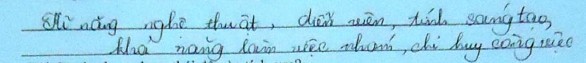 Kĩ năng nghệ thuật, diễn viên, tính sáng tạo,
khả năng làm việc nhóm, chỉ huy công việc